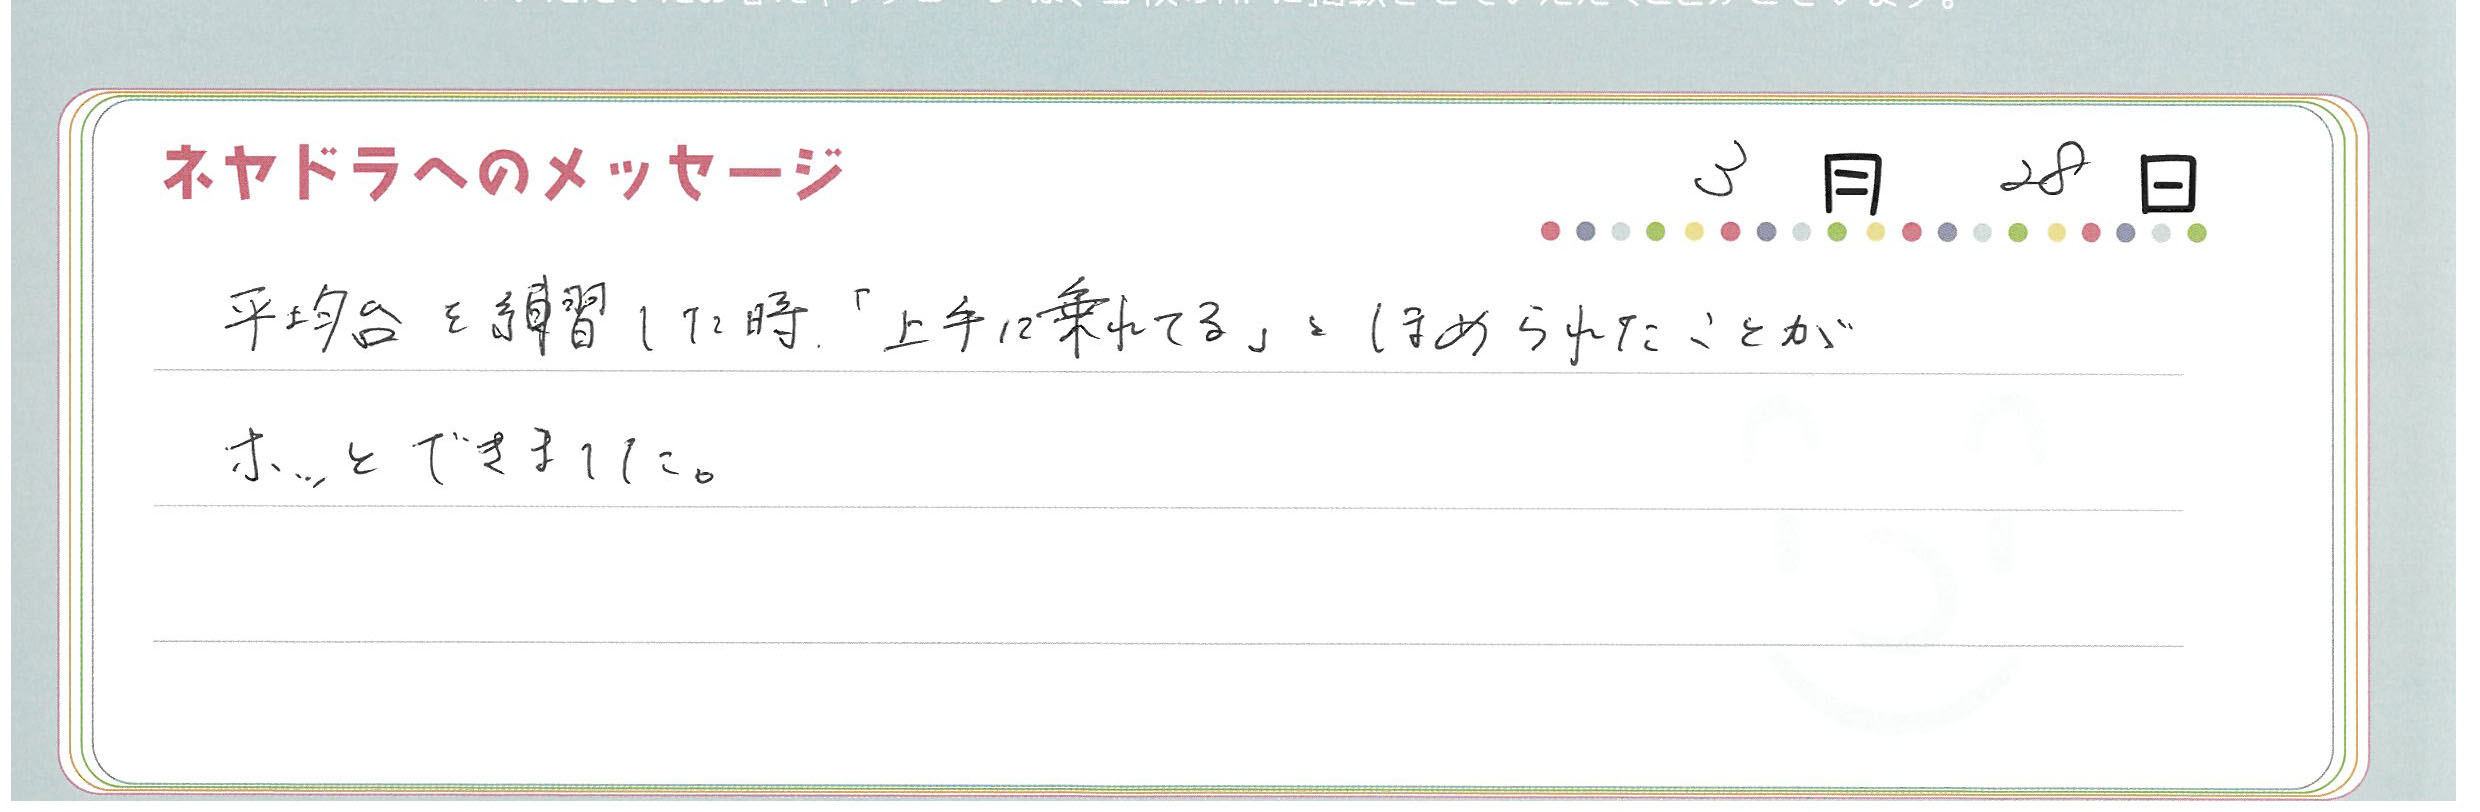 ネヤドラへのメッセージ
3月 28日
平均台を練習した時.「上手に乗れてる」とほめられたことが
ホッとできました。